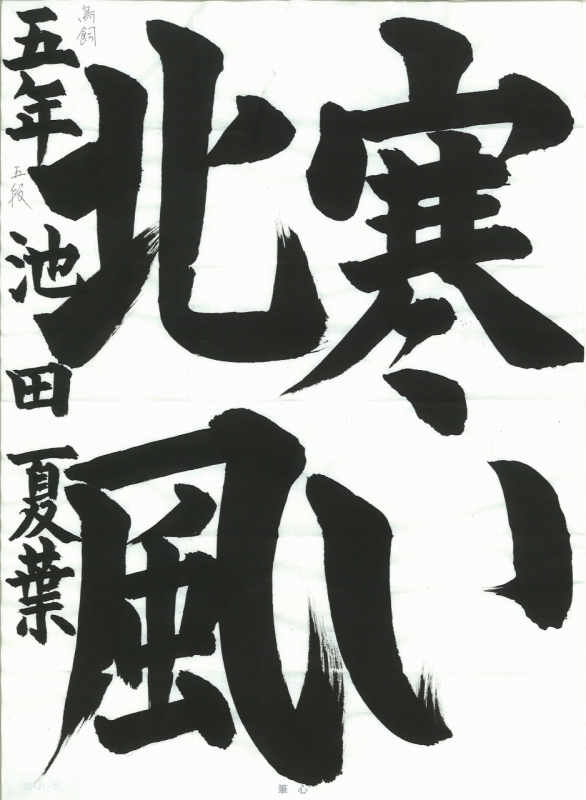 寒い
北風
五年 池田夏葉
鳥飼
五段
筆心